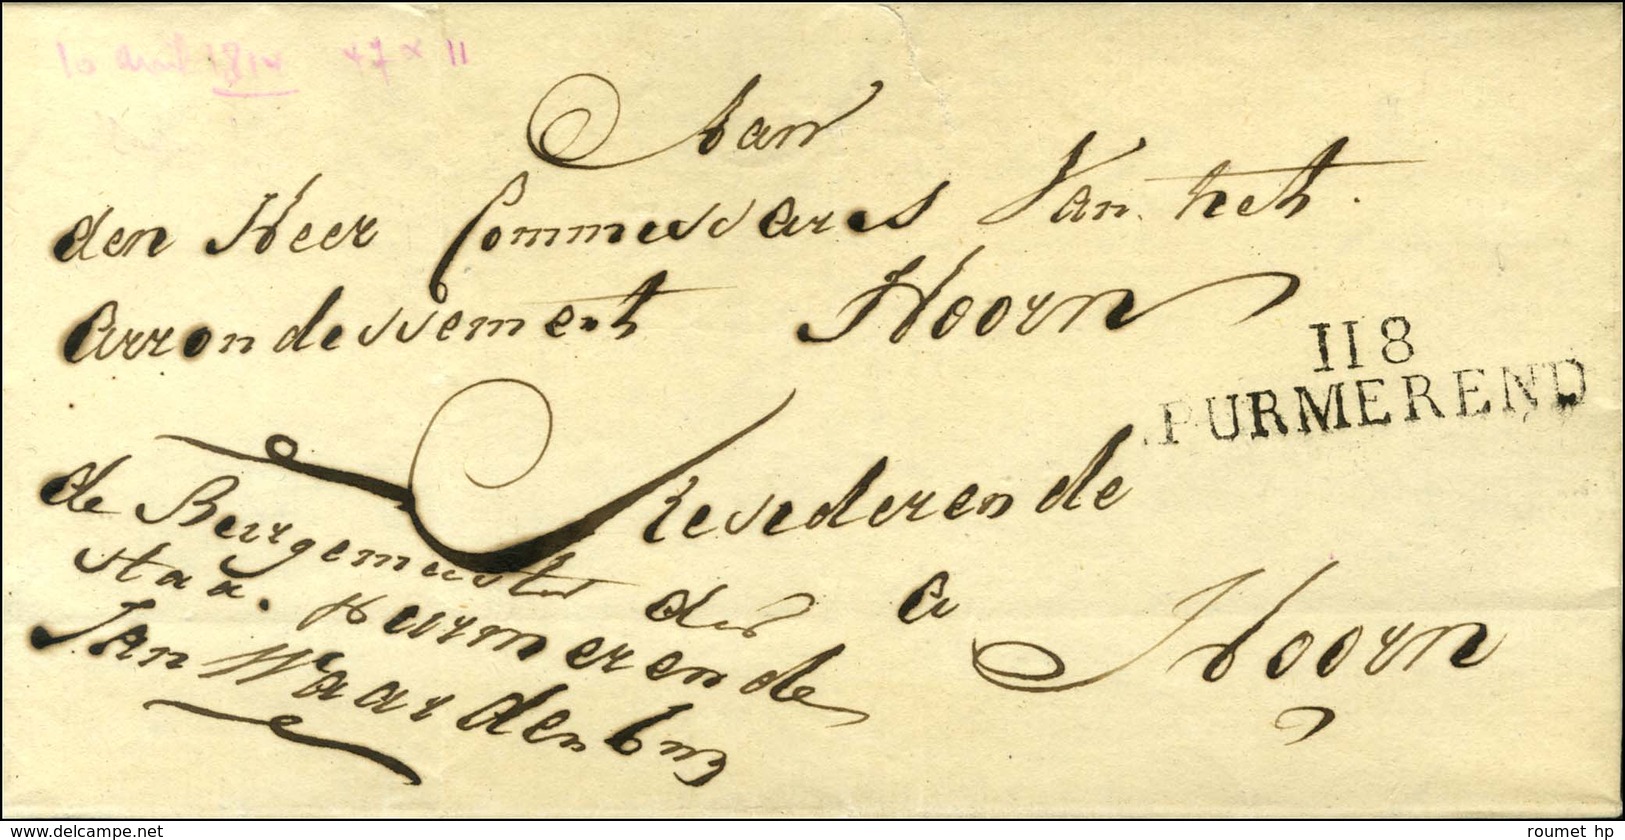 10 avril 1814 47 x 11
Aan
den Heer Commissaris Van het
Arrondissement Hoorn
118
PURMEREND
Resederende
a Hoorn
de Burgemeester der
stad Purmerende
Jan Waardenburg
roumet hp